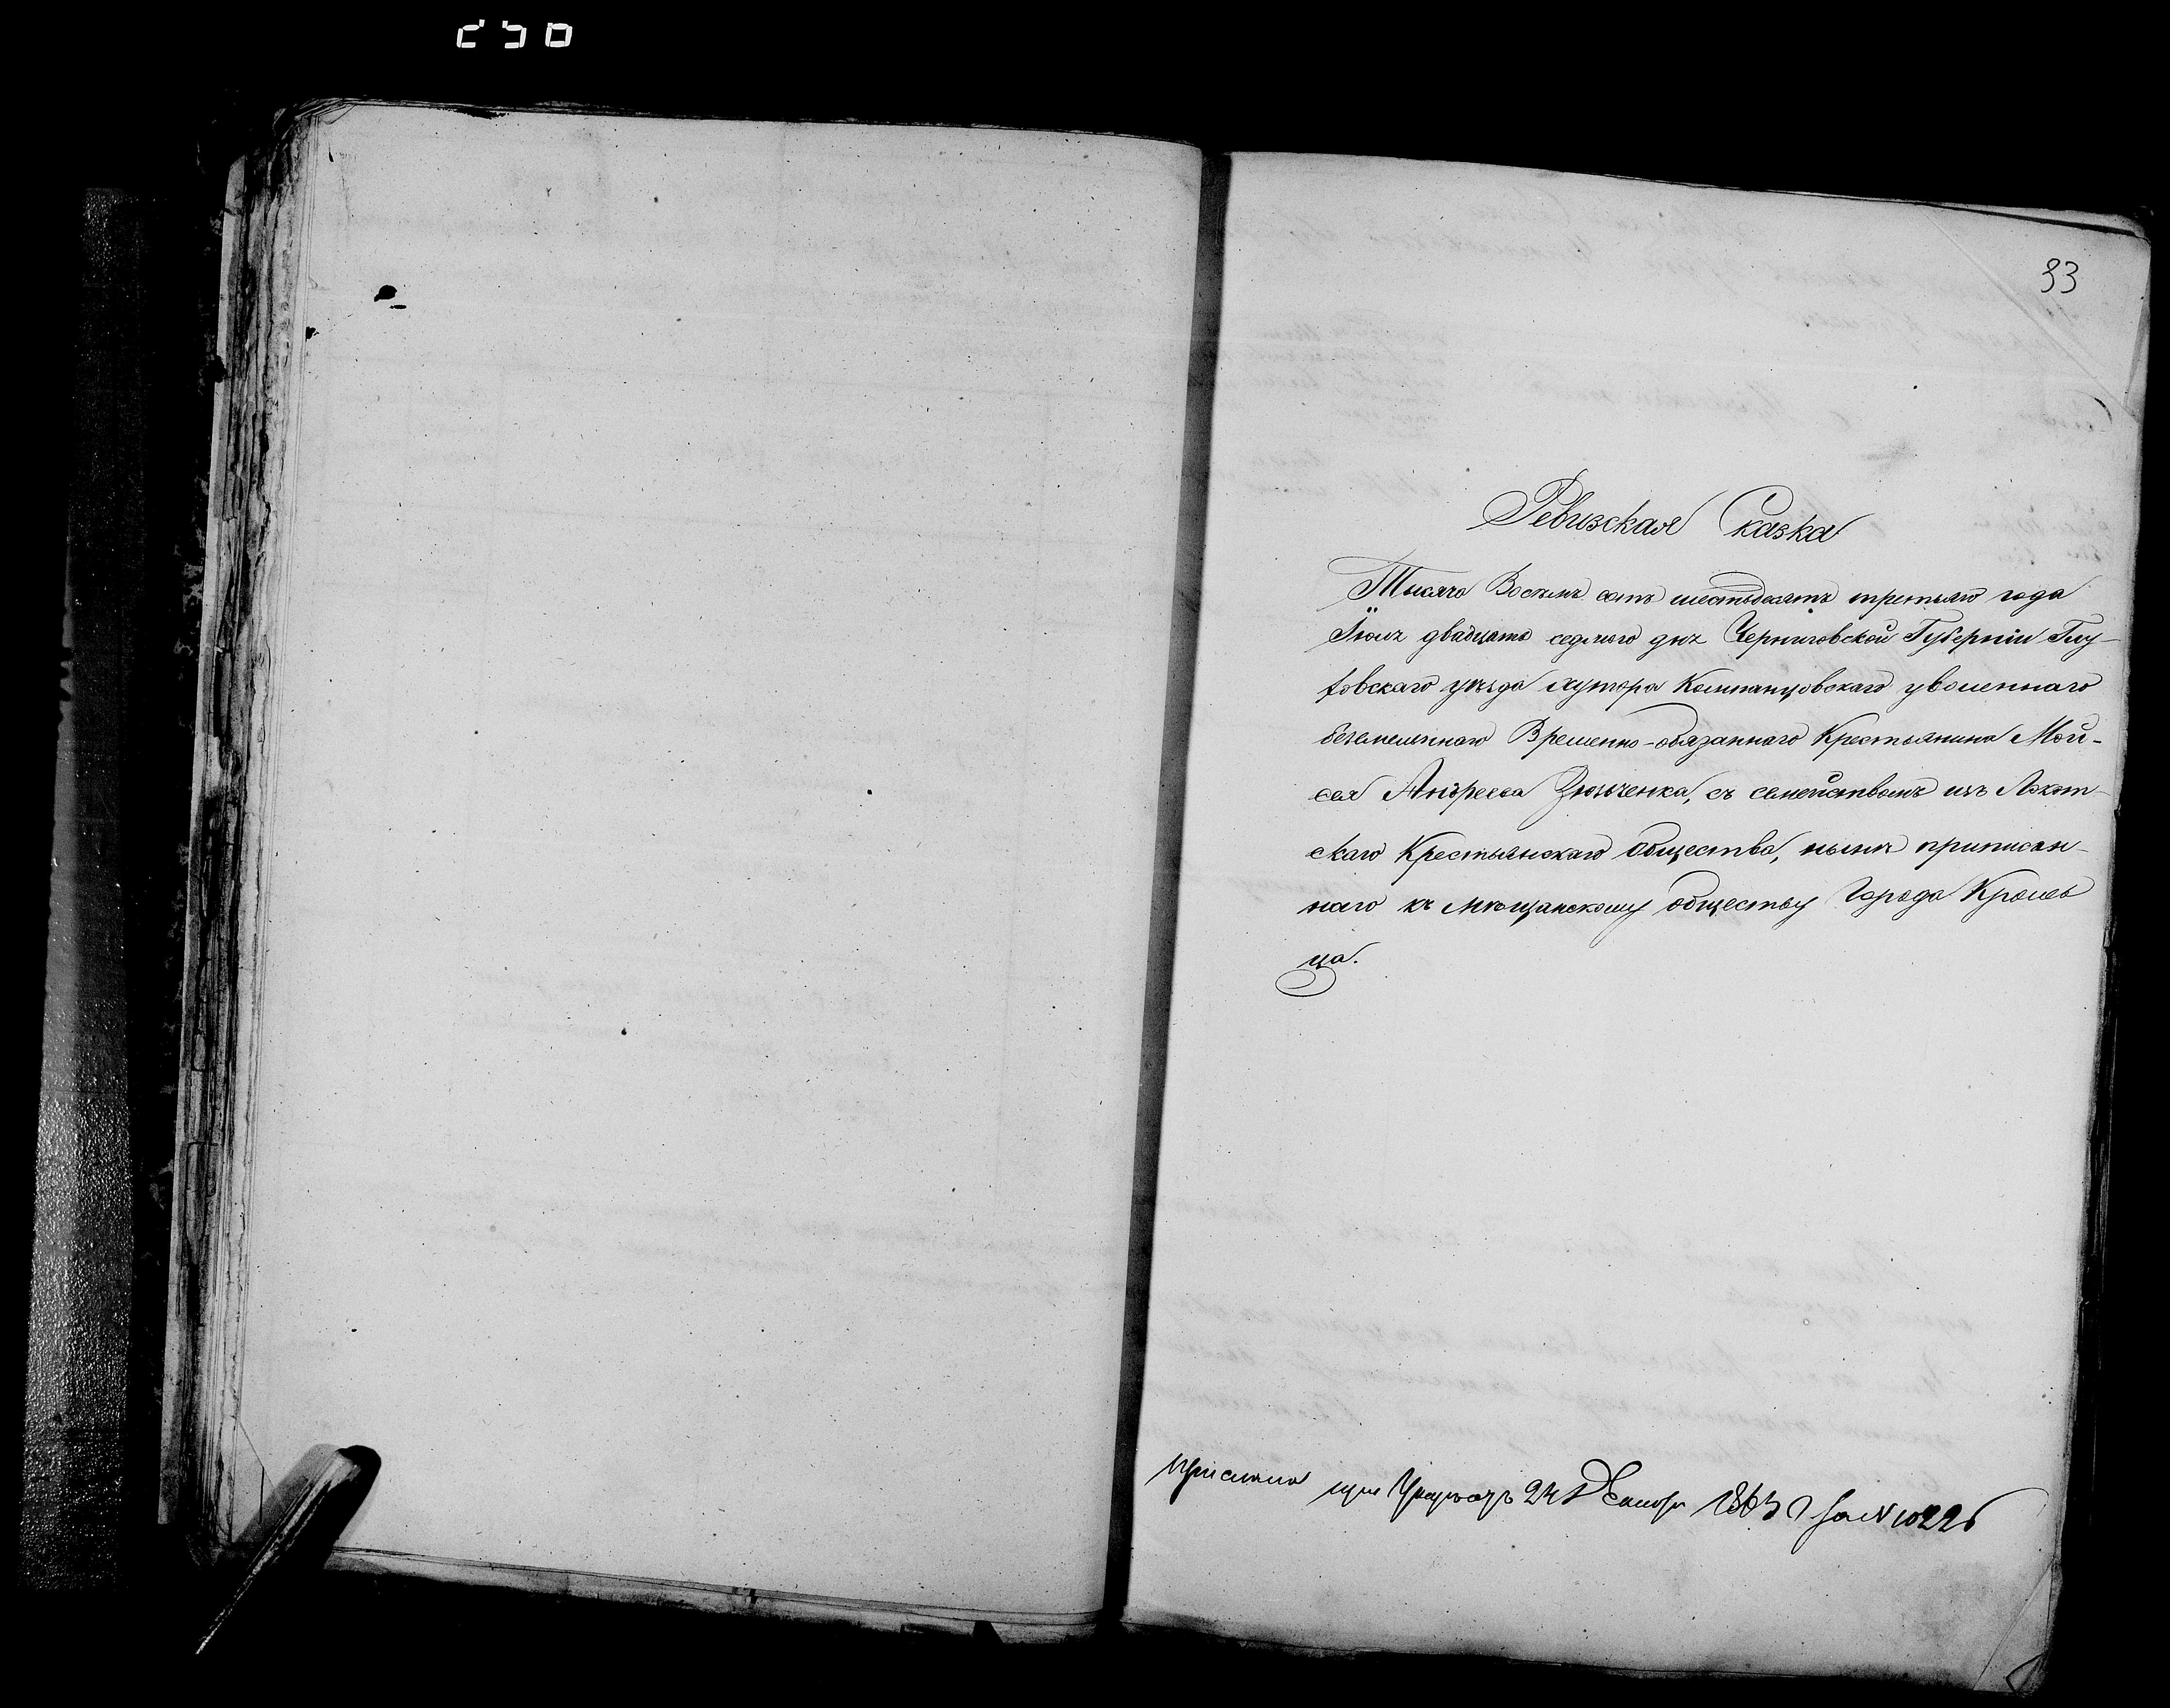 33
Ревизская Сказка
Тысяча Восемь сотъ шестьдесятъ третьяго года
Іюля двадцать седьмого дня Черниговской Губерніи Глу-
ховскаго уѣзда хутора Компанцовскаго уволеннаго
безземельнаго Временно-обязаннаго Крестьянина Мой-
сея Андреева Зюзченка, съ семействомъ изъ
скаго Крестьянскаго Общества, нынѣ приписан-
наго къ мѣщанскому обществу Города Кролев
ца.
прислана при 24 1863 г за N 10226